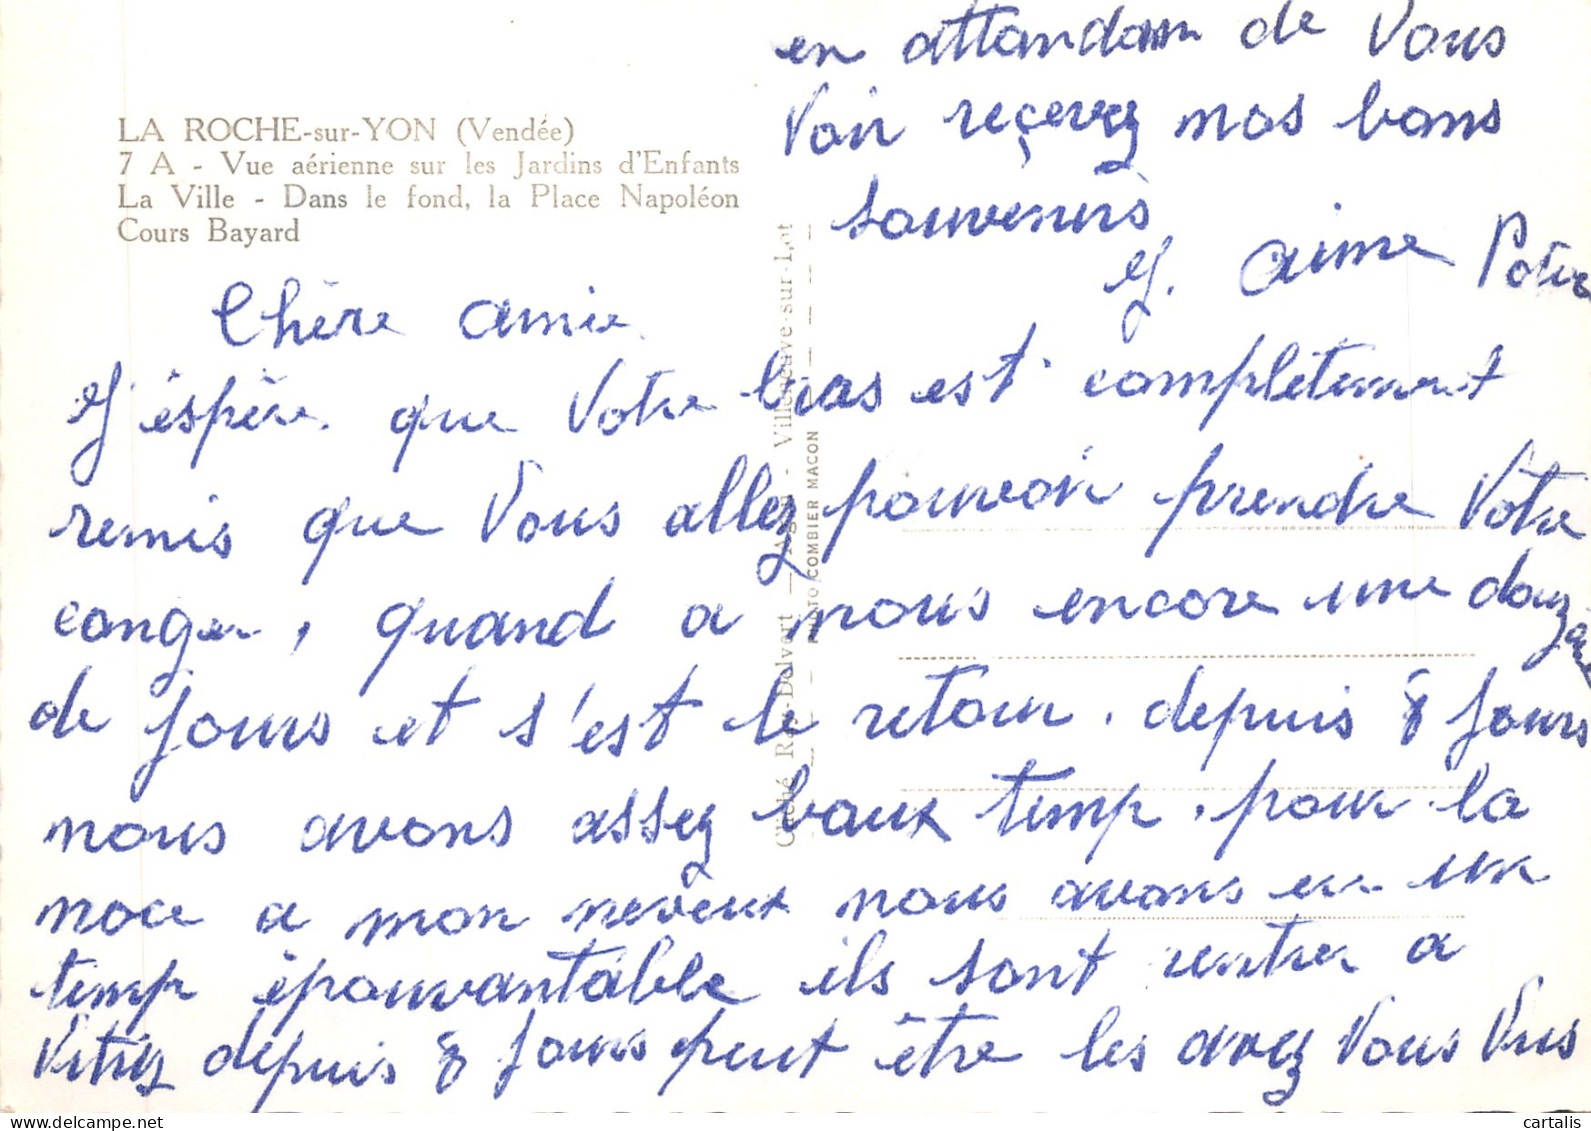 LA ROCHE-sur-YON (Vendée)
7 A - Vue aérienne sur les Jardins d'Enfants
La Ville - Dans le fond, la Place Napoléon
Cours Bayard
Chère amie
J'éspère que Votre bras est complètement
remis que Vous allez pouvoir prendre Votre
conger, quand a nous encore une douzaine
de jours et s'est le retour. depuis 8 jours
nous avons assez baux temp, pour la
noce a mon neveux nous avons eu un
temp épouvantable ils sont rentrer a
Vitrez depuis 8 jours peut être les avez Vous Vus
en attandam de Vous
Voir reçevez nos bons
souvenirs
J. aime
Cliché Ray-Delvert - Agen - Villeneuve-sur-Lot
PHOTO COMBIER MACON
cartalis